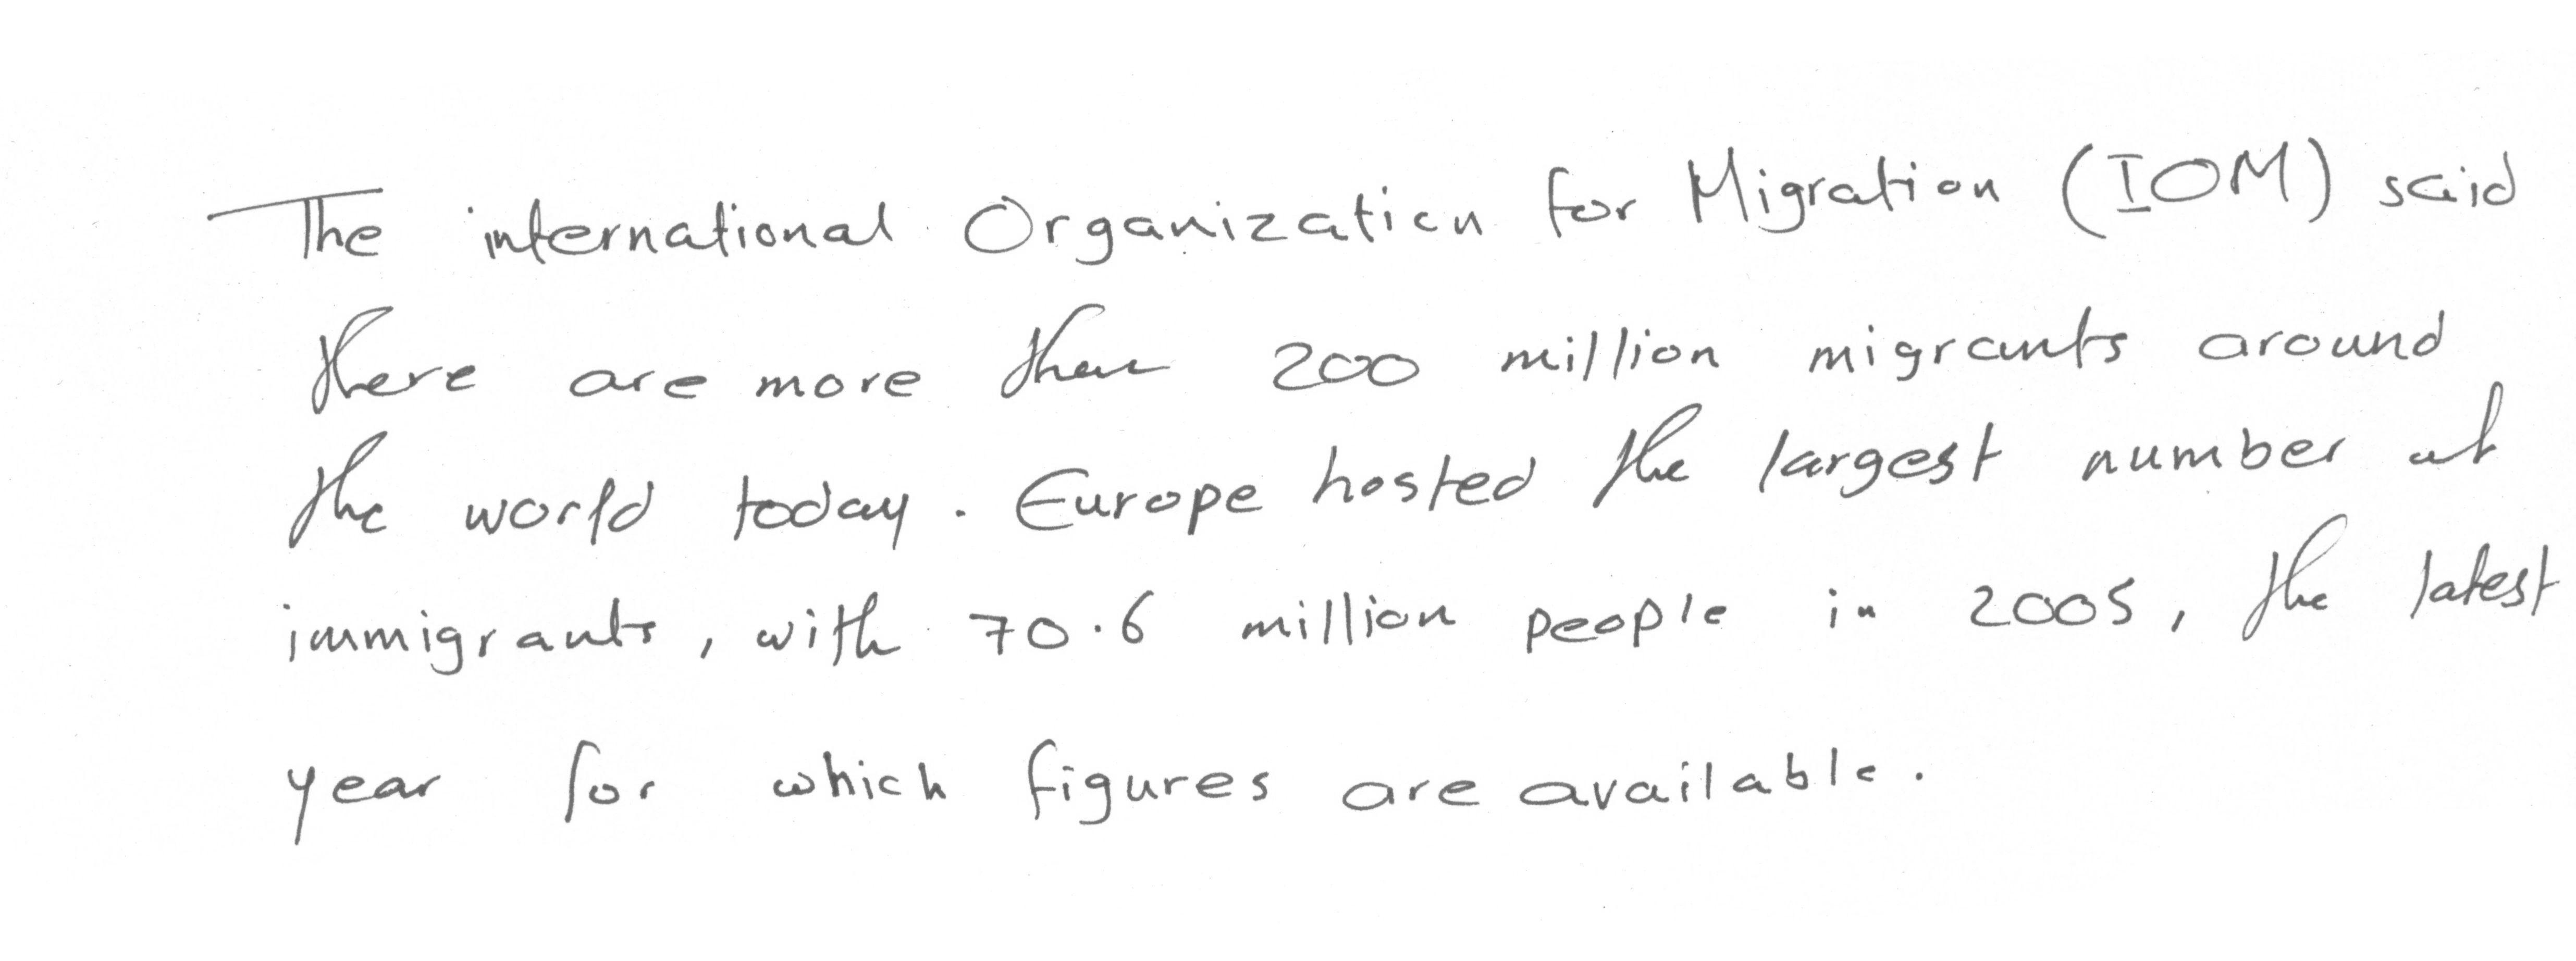 The international Organization for Migration (IOM) said
there are more than 200 million migrants around
the world today. Europe hosted the largest number at
immigrants, with 70.6 million people in 2005, the latest
year for which figures are available.